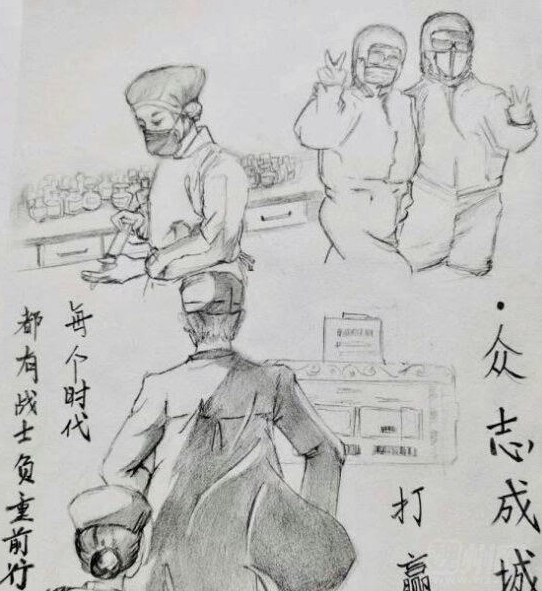 每个时代
都有战士负重前行
·众志成城
打赢